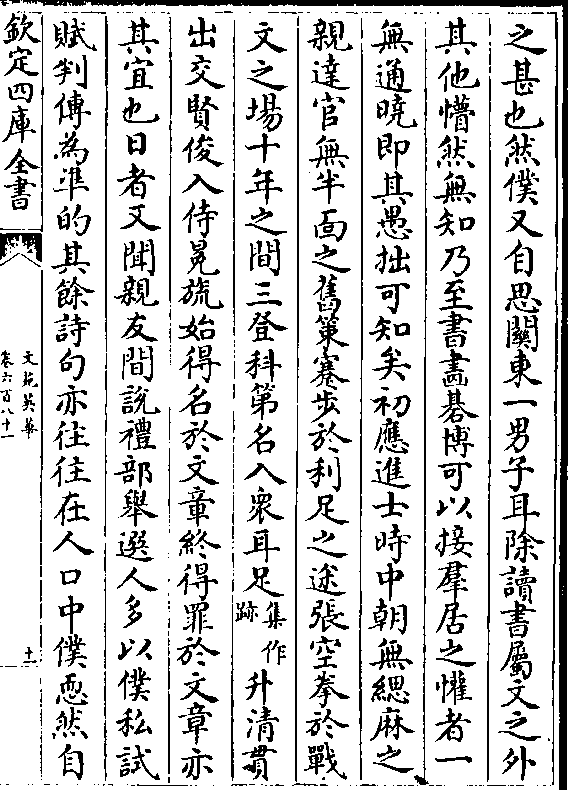 之甚也然僕又自思關東一男子耳除讀書屬文之外
其他懵然無知乃至書畵碁博可以接羣居之懽者一
無通曉即其愚拙可知矣初應進士時中朝無緦麻之
親達官無半面之舊策蹇步於利足之途張空拳於戰
文之場十年之間三登科第名入衆耳足集作跡升清貫
出交賢俊入侍冕旒始得名於文章終得罪於文章亦
其宜也日者又聞親友間説禮部舉選人多以僕私試
賦判傳為準的其餘詩句亦往往在人口中僕恧然自
欽定四庫全書
文苑英華
卷六百八十一
十一